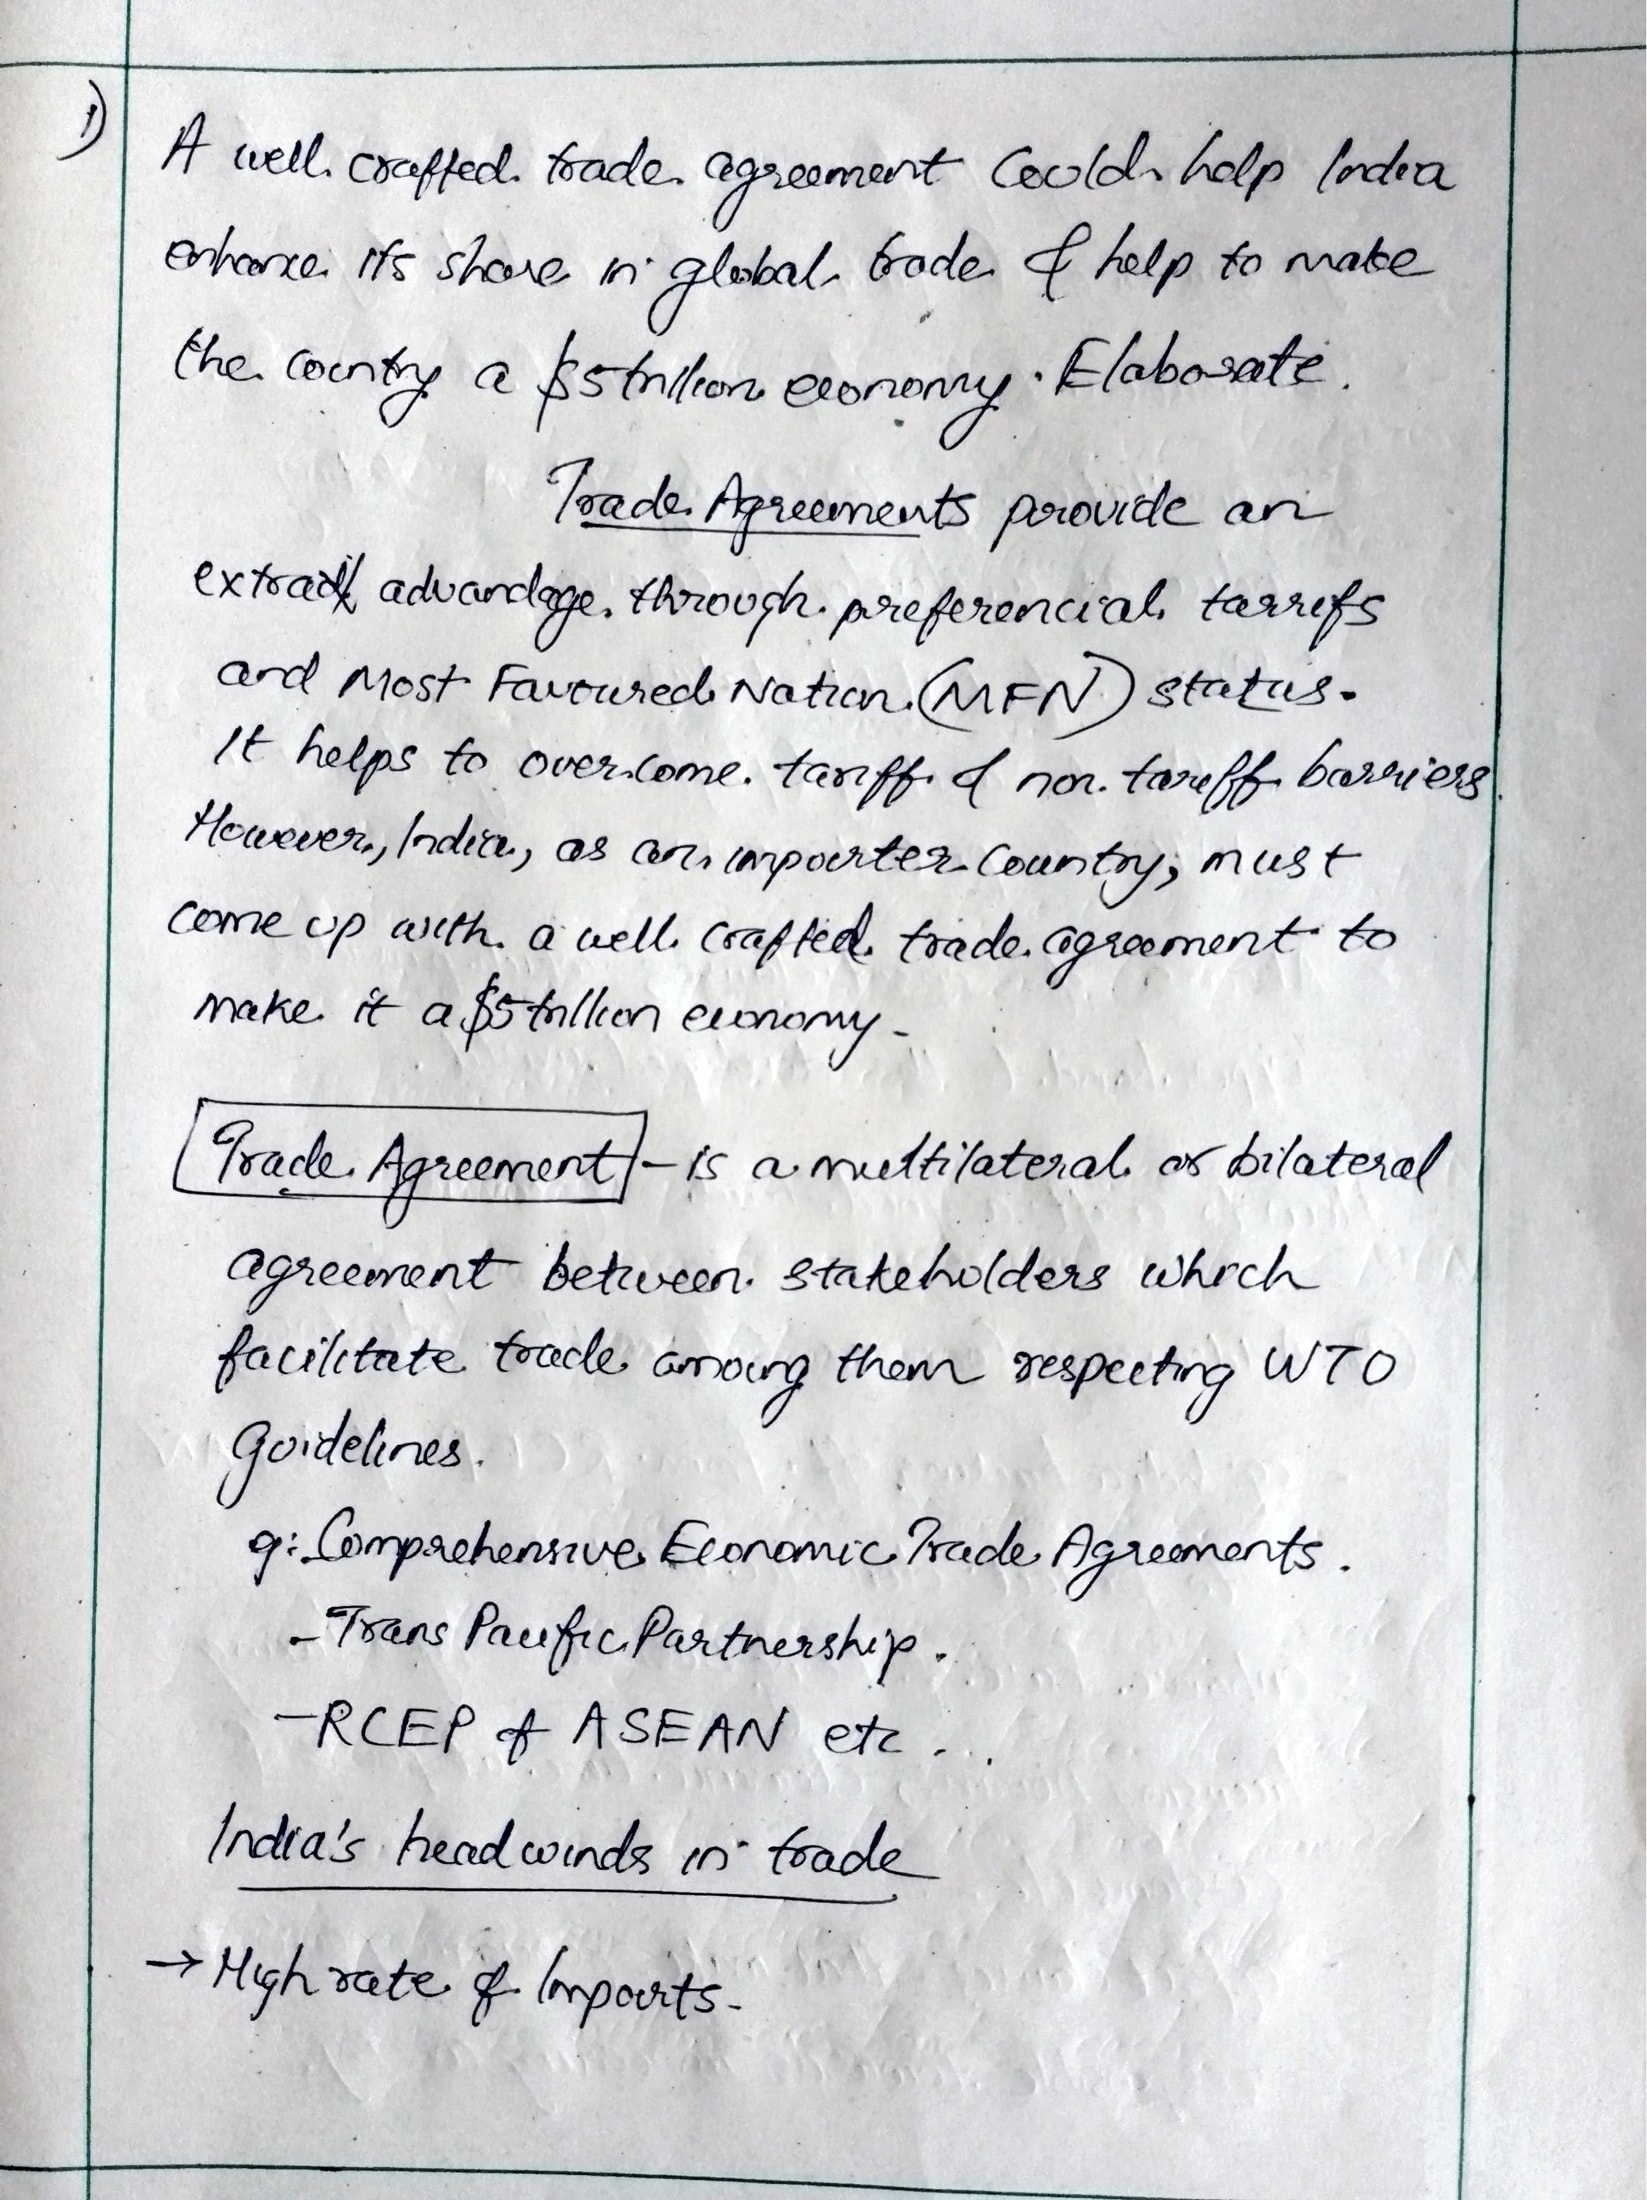 1)
A well crafted trade agreement could help India
enhance its share in global trade & help to make
the country a $5 trillion economy. Elaborate.
Trade Agreements provide an
extra advandage through preferencial tarrifs
and Most Favoured Nation (MFN) status.
It helps to overcome tariff & non tariff barriers.
However, India, as an importer country, must
come up with a well crafted trade agreement to
make it a $5 trillion economy.
Trade Agreement - is a multilateral or bilateral
agreement between stakeholders which
facilitate trade among them respecting WTO
Guidelines.
g: Comprehensive Economic Trade Agreements.
- Trans Pacific Partnership.
- RCEP of ASEAN etc...
India's headwinds in trade
→ High rate of Imports.